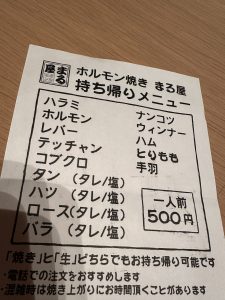 まる屋
ホルモン焼き まる屋
持ち帰りメニュー
ハラミ
ホルモン
レバー
テッチャン
コブクロ
タン (タレ/塩)
ハツ (タレ/塩)
ロース(タレ/塩)
バラ (タレ/塩)
ナンコツ
ウィンナー
ハム
とりもも
手羽
一人前
500円
「焼き」と「生」どちらでもお持ち帰り可能です
・電話での注文をおすすめします
・混雑時は焼き上がりにお時間頂くことがあります